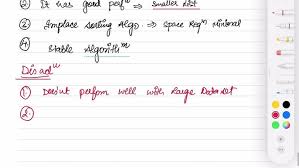 ② It has good perfⁿ ⇒ smaller list
③ Inplace sorting Algo ⇒ Space Reqⁿ Minimal
④ Stable Algorithᵐ
Disadᵛ
① Does'nt perform well with Large Dataset
②